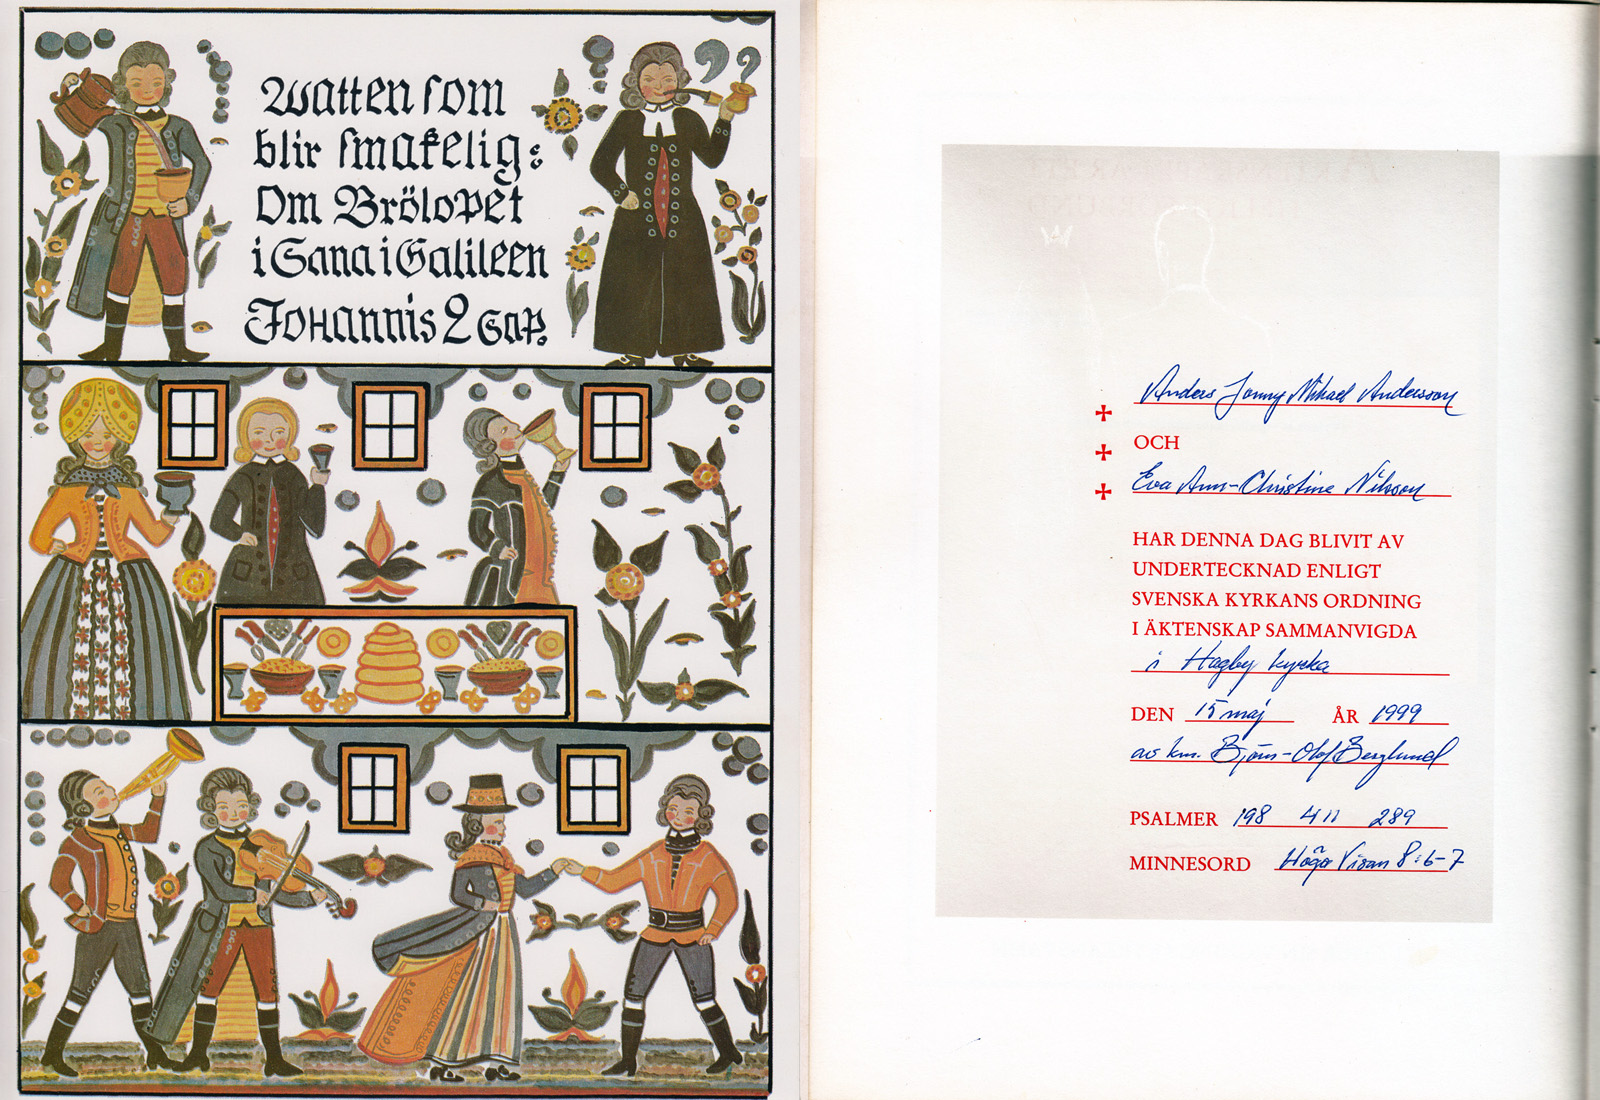 Watten som
blir smakelig:
Om Brölopet
i Cana i Galileen
Johannis 2 Cap.
Anders Jonny Mikael Andersson
OCH
Eva Ann-Christine Nilsson
HAR DENNA DAG BLIVIT AV
UNDERTECKNAD ENLIGT
SVENSKA KYRKANS ORDNING
I ÄKTENSKAP SAMMANVIGDA
i Hagby kyrka
DEN 15 maj ÅR 1999
av km. Björn-Olof Berglund
PSALMER 198 411 289
MINNESORD Höga Visan 8:6-7